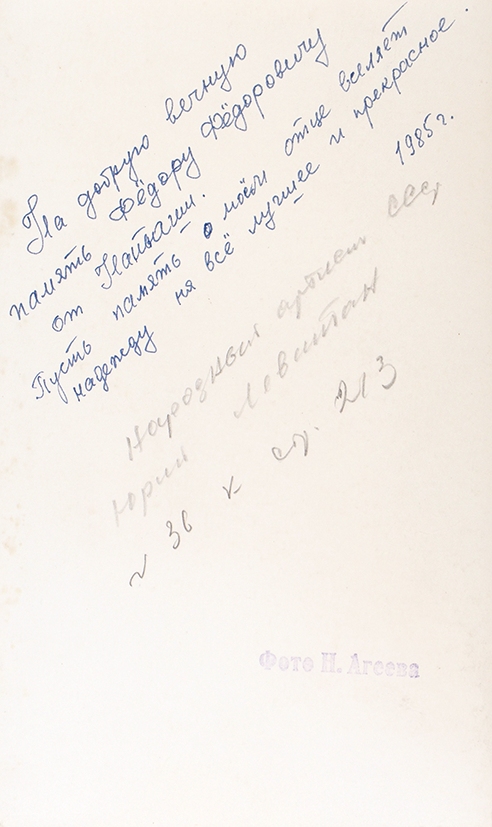 На добрую вечную
память Фёдору Фёдоровичу
от Натьаши.
Пусть память о моём отце вселяет
надежду на всё лучшее и прекрасное.
1985г.
Народный артист СССР
Юрий Левитан
36 к стр. 213
Фото Н. Агеева